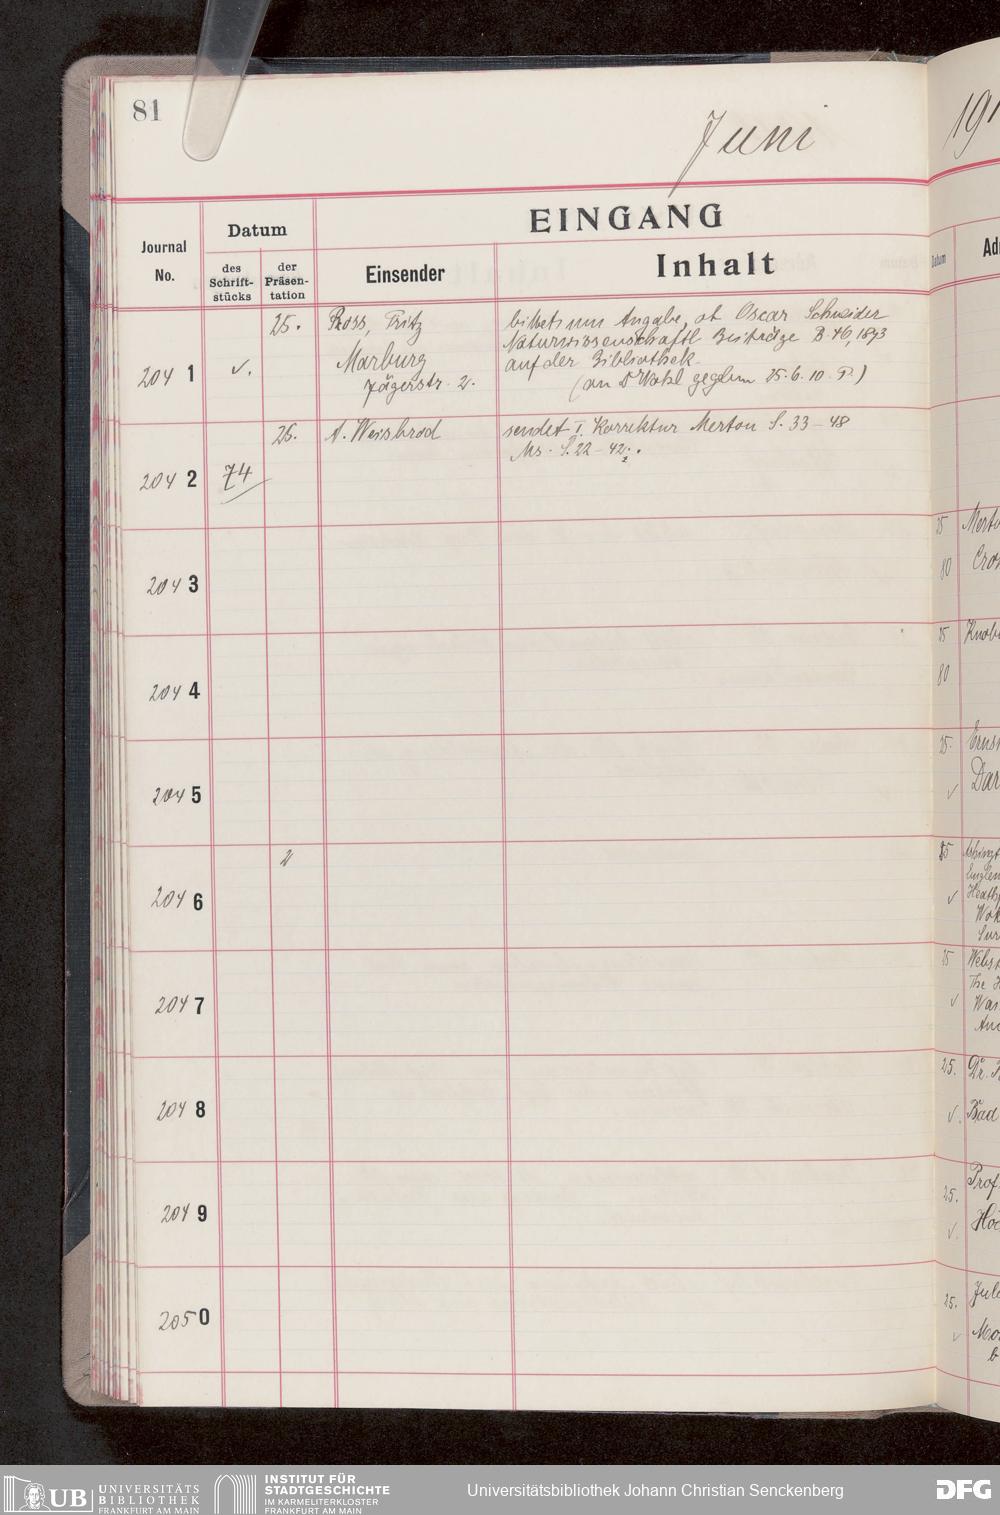 81
Juni
191
EINGANG
Journal
No.
Datum
des
Schrift-
stücks
der
Präsen-
tation
Einsender
Inhalt
Datum
204 1
25.
Ross, Fritz
Marburg
Jägerstr. 2.
bittet um Angabe, ob Oscar Schneider
Naturwissenschaftl Beiträge B. 46, 1893
auf der Bibliothek
(an Dr Wahl gegeben 25.6.10 P.)
204 2
74
25.
A. Weisbrod
sendet I. Korrektur Merton S. 33 - 48
Ms. S. 22 - 42
204 3
204 4
204 5
204 6
204 7
204 8
204 9
205 0
25
80
25
80
25.
25
25
25.
Dr.
Bad
25.
Prof.
25.
UB UNIVERSITÄTS
BIBLIOTHEK
FRANKFURT AM MAIN
INSTITUT FÜR
STADTGESCHICHTE
IM KARMELITERKLOSTER
FRANKFURT AM MAIN
Universitätsbibliothek Johann Christian Senckenberg
DFG